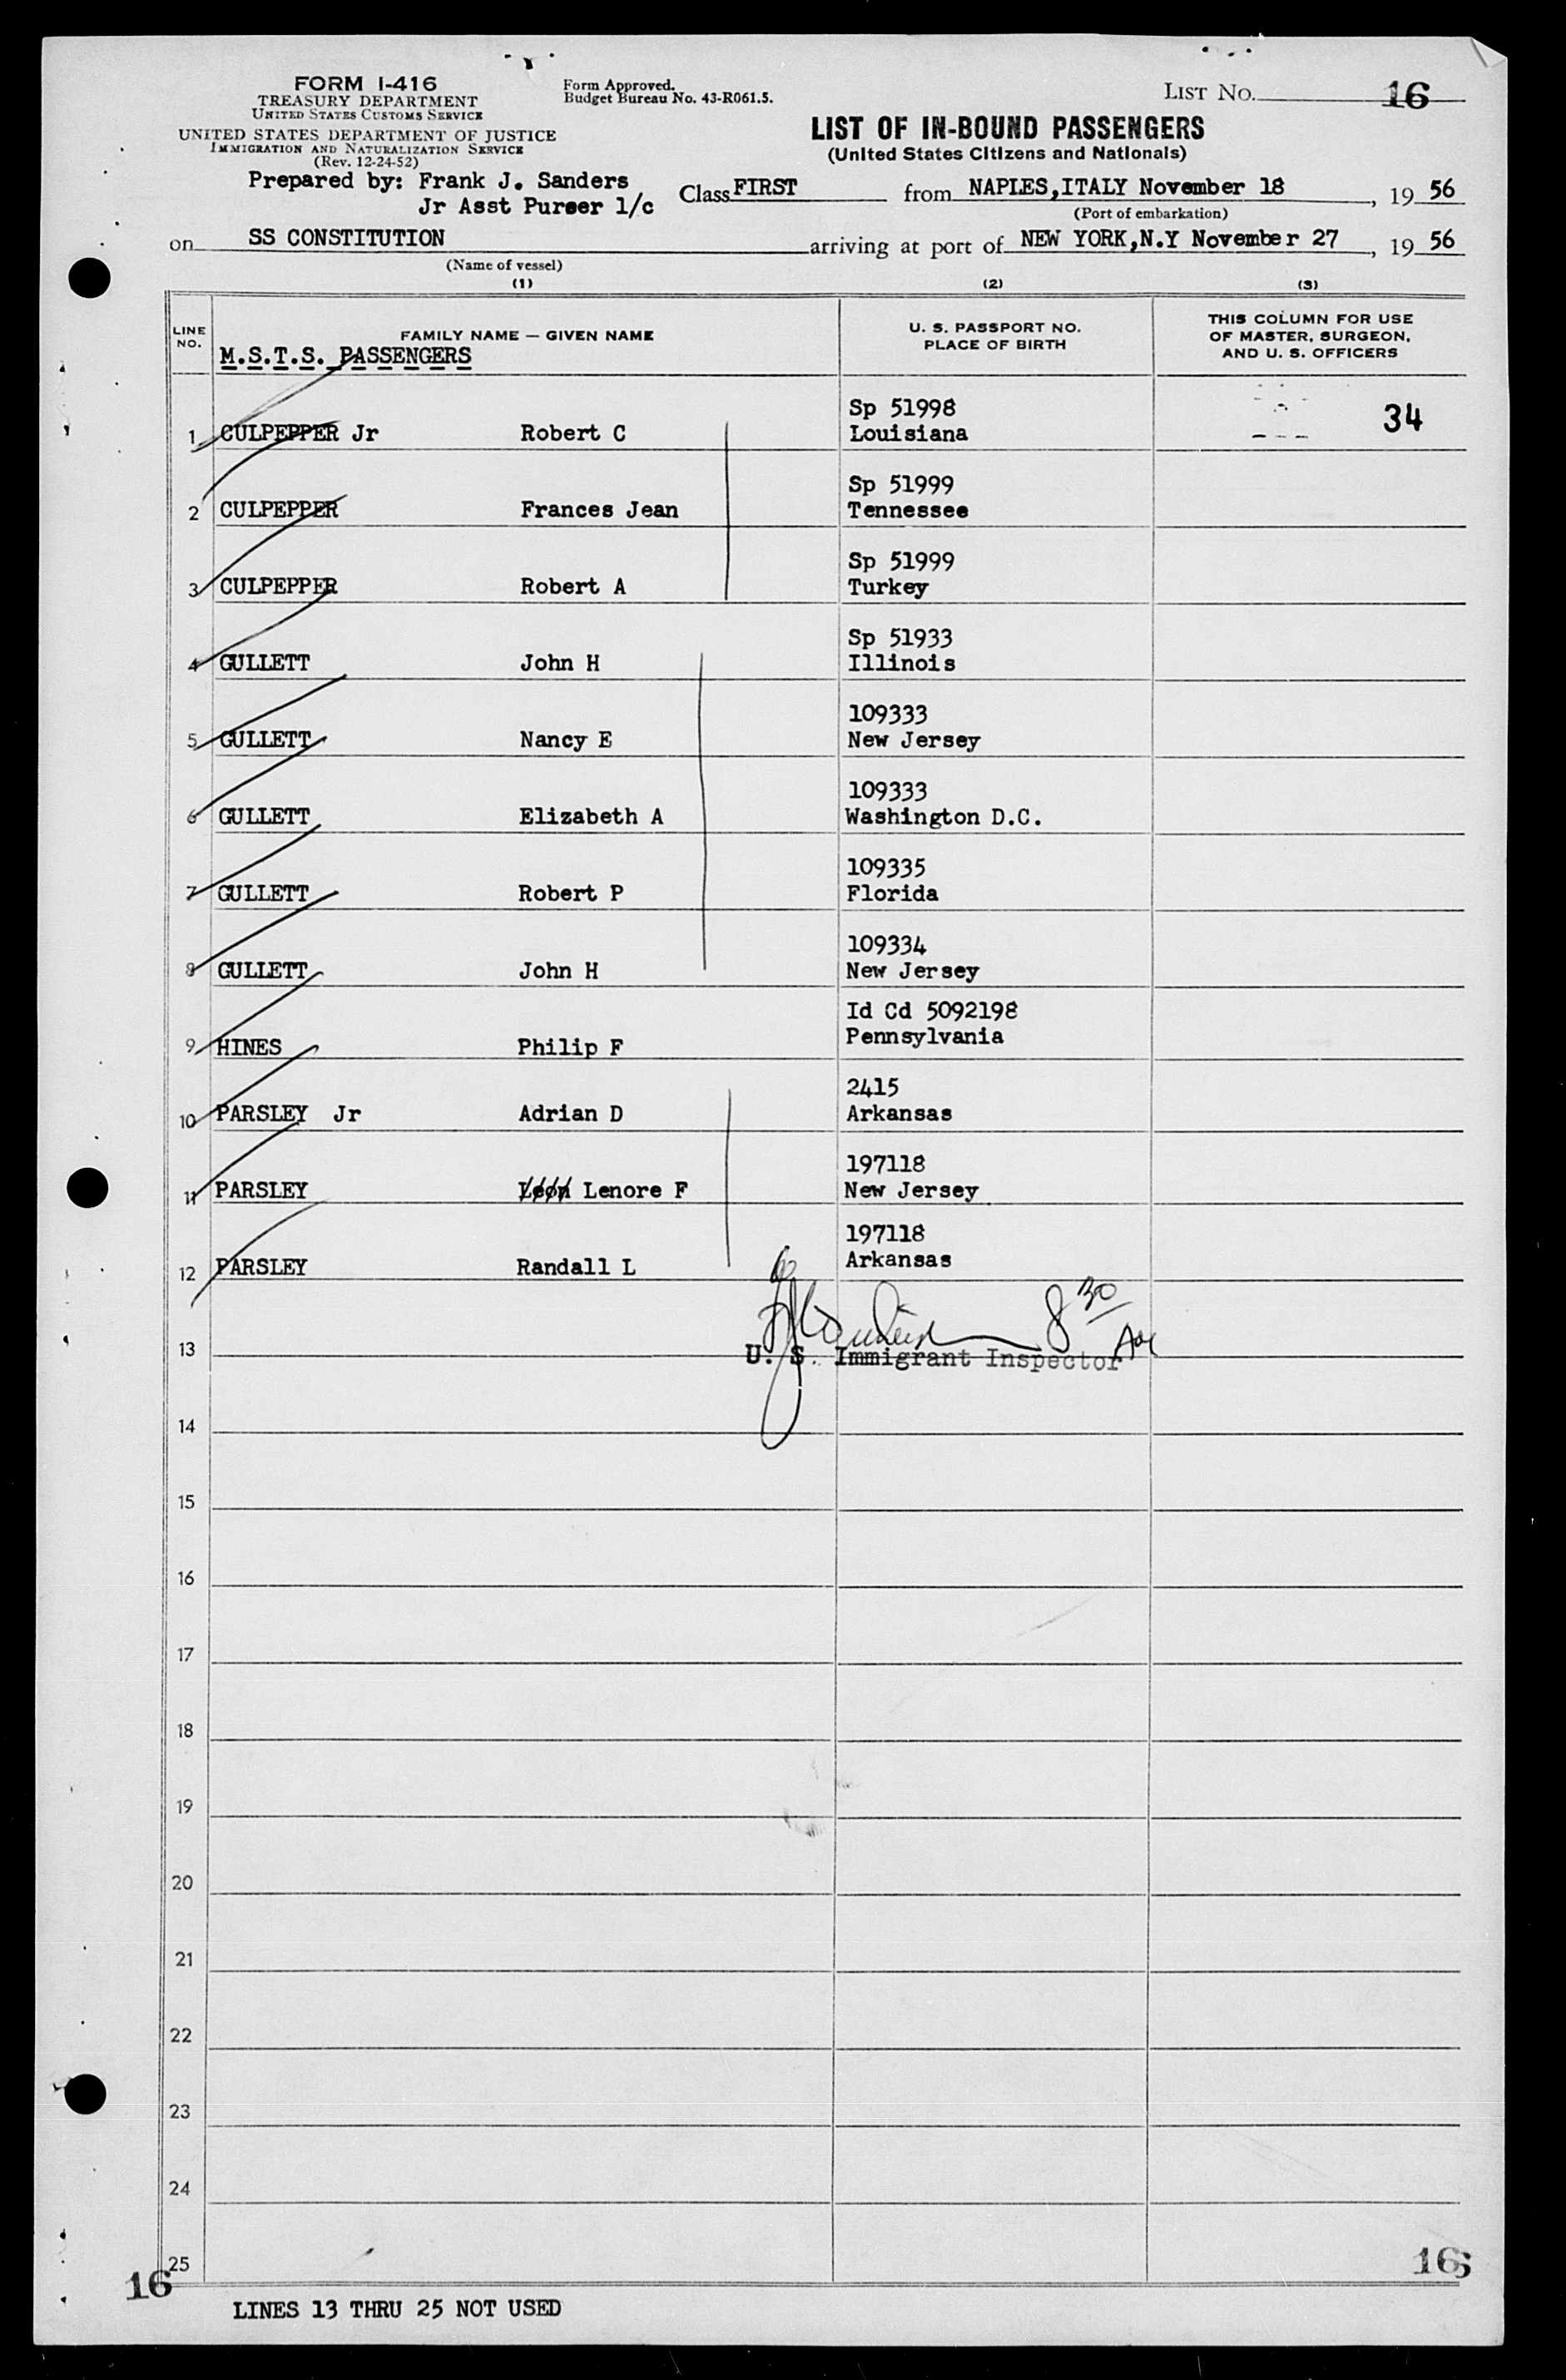 FORM I-416
TREASURY DEPARTMENT
UNITED STATES CUSTOMS SERVICE
UNITED STATES DEPARTMENT OF JUSTICE
IMMIGRATION AND NATURALIZATION SERVICE
(Rev. 12-24-52)
Form Approved.
Budget Bureau No. 43-R061.5.
LIST NO. 16
LIST OF IN-BOUND PASSENGERS
(United States Citizens and Nationals)
Prepared by: Frank J. Sanders
Jr Asst Purser 1/c
Class FIRST from NAPLES,ITALY November 18, 19 56
(Port of embarkation)
on SS CONSTITUTION arriving at port of NEW YORK,N.Y November 27, 19 56
(Name of vessel)
(1) (2) (3)
LINE NO.
FAMILY NAME — GIVEN NAME
U. S. PASSPORT NO.
PLACE OF BIRTH
THIS COLUMN FOR USE
OF MASTER, SURGEON,
AND U. S. OFFICERS
M.S.T.S. PASSENGERS
Sp 51998
1 CULPEPPER Jr Robert C Louisiana 34
Sp 51999
2 CULPEPPER Frances Jean Tennessee
Sp 51999
3 CULPEPPER Robert A Turkey
Sp 51933
4 GULLETT John H Illinois
109333
5 GULLETT Nancy E New Jersey
109333
6 GULLETT Elizabeth A Washington D.C.
109335
7 GULLETT Robert P Florida
109334
8 GULLETT John H New Jersey
Id Cd 5092198
9 HINES Philip F Pennsylvania
2415
10 PARSLEY Jr Adrian D Arkansas
197118
11 PARSLEY Leon Lenore F New Jersey
197118
12 PARSLEY Randall L Arkansas
8 30
13 U. S. Immigrant Inspector
14
15
16
17
18
19
20
21
22
23
24
25
16 16
LINES 13 THRU 25 NOT USED